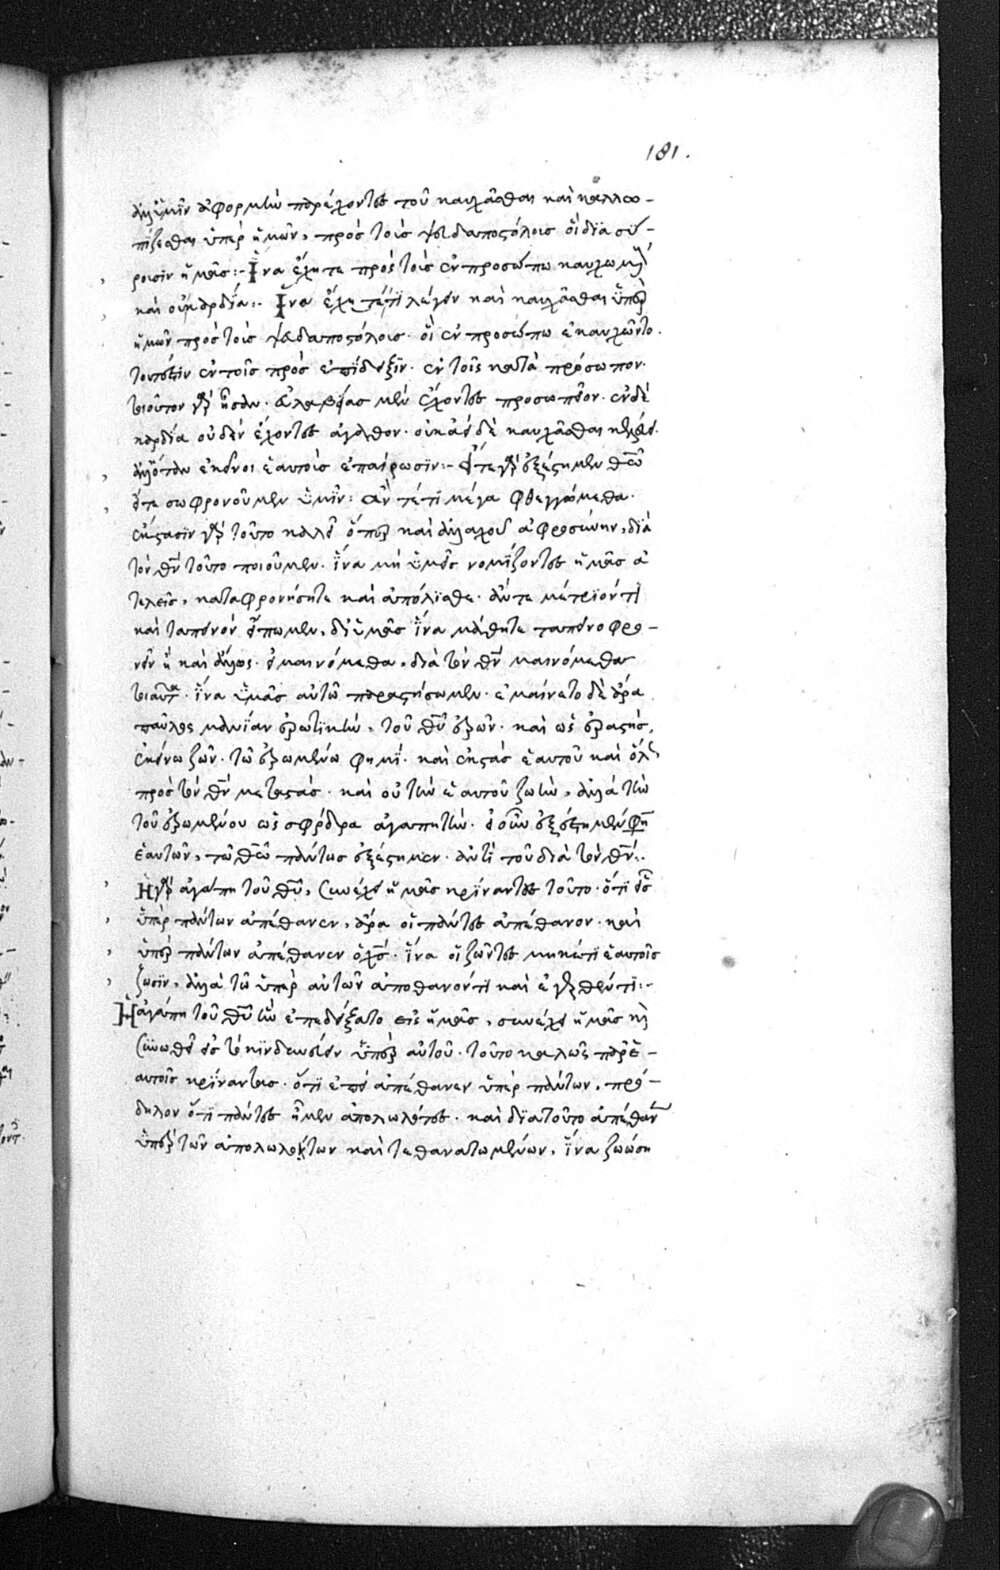 181.
ἀλλ' ὑμῖν ἀφορμὴν παρέχοντες τοῦ καυχᾶσθαι καὶ καλλω-
πίζεσθαι ὑπὲρ ἡμῶν, πρὸς τοὺς ψευδαποστόλους οἳ διασύ-
ρουσιν ἡμᾶς:- Ἵνα ἔχητε πρὸς τοὺς ἐν προσώπω καυχωμένους
καὶ οὐ καρδία:- Ἵνα ἔχητέ τι λέγειν καὶ καυχᾶσθαι ὑπὲρ
ἡμῶν πρὸς τοὺς ψευδαποστόλους. οἳ ἐν προσώπω ἐκαυχῶντο.
τουτέστιν ἐν τοῖς πρὸς ἐπίδειξιν. ἐν τοῖς κατὰ πρόσωπον.
τοιοῦτοι γὰρ ἦσαν. εὐλαβείας μὲν ἔχοντες προσωπεῖον. ἐν δὲ
καρδία οὐδὲν ἔχοντες ἀγαθόν.
ἐκεῖνοι ἑαυτοὺς ἐπαίρωσιν:- Εἴτε γὰρ ἐξέστημεν θεῶ
εἴτε σωφρονοῦμεν ὑμῖν: ἐάν τέ τι μέγα φθεγγώμεθα.
τοῦτο καλεῖ ὥσπερ καὶ ἀλλαχοῦ ἀφροσύνην, διὰ
τὸν θν τοῦτο ποιοῦμεν. ἵνα μὴ ὑμεῖς νομίζοντες ἡμᾶς εὐ
τελεῖς, καταφρονήσητε καὶ ἀπόλησθε. ἐάν τε μέτριόν τι
καὶ ταπεινὸν εἴπωμεν, δι' ὑμᾶς ἵνα μάθητε ταπεινοφρο-
νεῖν ἢ καὶ ἄλλως. εἰ μαινόμεθα, διὰ τὸν θν μαινόμεθα
τοιαῦτα. ἵνα ὑμᾶς αὐτῶ παραστήσωμεν. ἐμαίνετο δὲ ἄρα
παῦλος μανίαν ἐρωτικήν, τοῦ θυ ἐρῶν. καὶ ὡς ἐραστής,
ἐκείνω ζῶν. τῶ ἐρωμένω φημί. καὶ ἐκστὰς ἑαυτοῦ καὶ ὅλος
πρὸς τὸν θν μεταστάς. καὶ οὐ τὴν ἑαυτοῦ ζωήν, ἀλλὰ τὴν
τοῦ ἐρωμένου ὡς σφόδρα ἀγαπητήν. εἰ οὖν ἐξέστημεν φησὶ
ἑαυτῶν, τῶ θεῶ πάντως ἐξέστημεν. ἀντὶ τοῦ διὰ τὸν θν:.
Ἡ γὰρ ἀγάπη τοῦ θυ, συνέχει ἡμᾶς κρίναντας τοῦτο. ὅτι εἷς
ὑπὲρ πάντων ἀπέθανεν, ἄρα οἱ πάντες ἀπέθανον. καὶ
ὑπὲρ πάντων ἀπέθανεν ὁ χς. ἵνα οἱ ζῶντες μηκέτι ἑαυτοῖς
ζῶσιν, ἀλλὰ τῶ ὑπὲρ αὐτῶν ἀποθανόντι καὶ ἐγερθέντι:-
Ἡ ἀγάπη τοῦ θυ ἣν ἐπεδείξατο εἰς ἡμᾶς, συνέχει ἡμᾶς καὶ
συνωθεῖ εἰς τὸ κινδυνεύειν ὑπὲρ αὐτοῦ. τοῦτο καλῶς παρ' ἑ-
αυτοῖς κρίναντας. ὅτι ἐπεὶ ἀπέθανεν ὑπὲρ πάντων, πρό-
δηλον ὅτι πάντες ἦμεν ἀπολωλότες. καὶ διὰ τοῦτο ἀπέθανεν
ὑπὲρ τῶν ἀπολωλότων καὶ τεθανατωμένων, ἵνα ζωώση